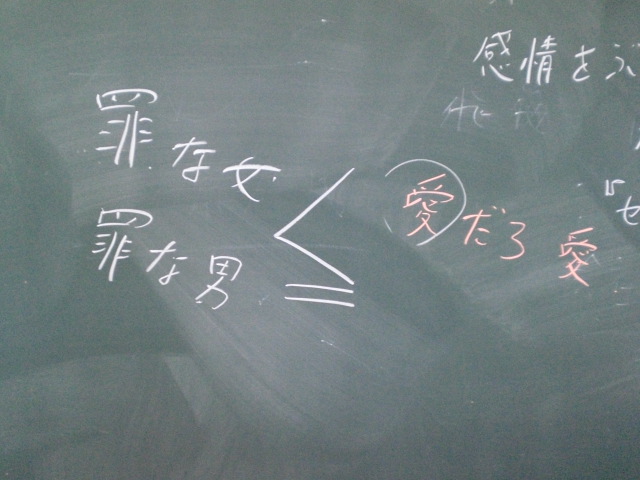 感情をぶ
罪な女
罪な男
≦
愛だろ 愛
せ